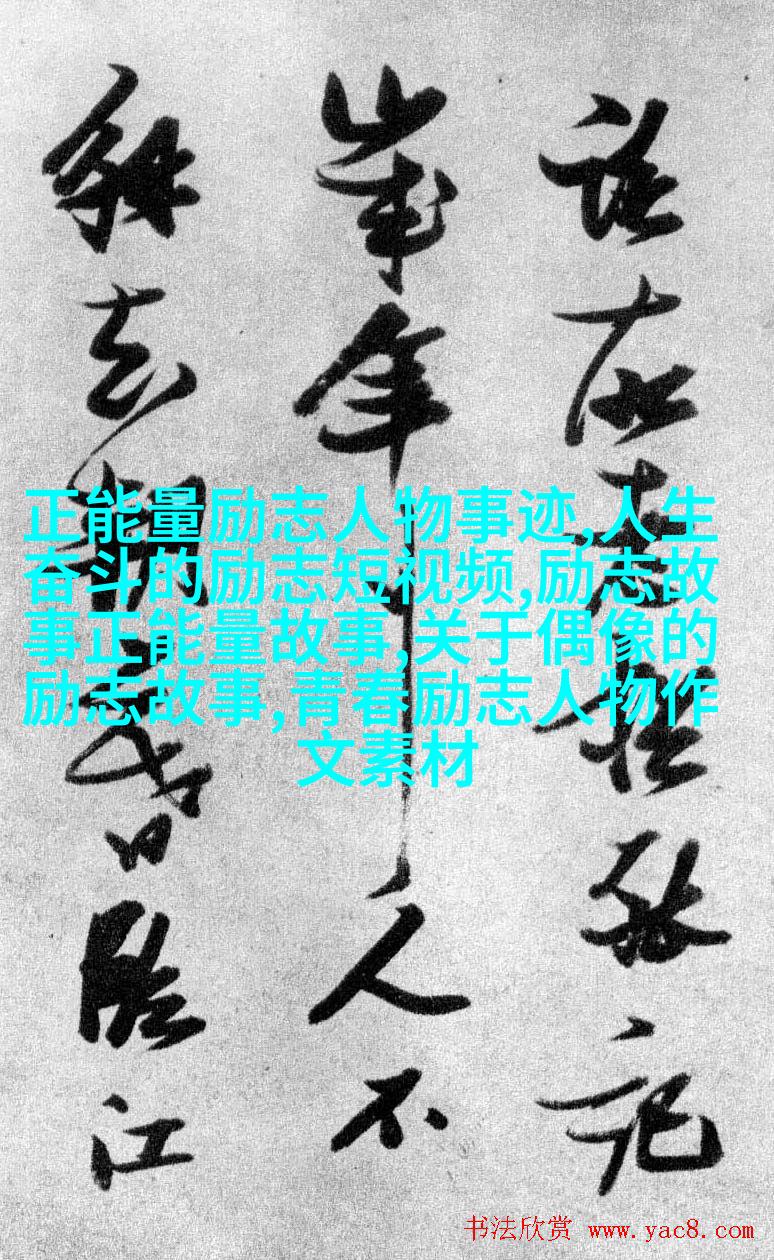 記
歲年人不
去昏臨江
正能量励志人物事迹,人生
奋斗的励志短视频,励志故
事正能量故事,关于偶像的
励志故事,青春励志人物作
文素材
书法欣赏 www.yac8.com